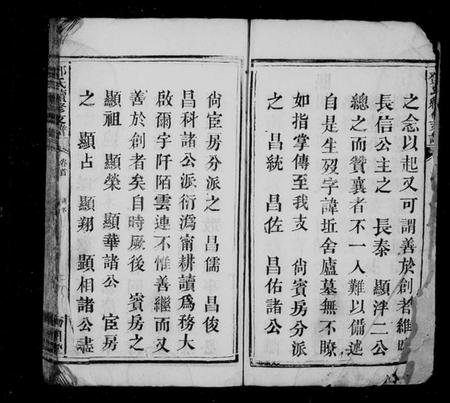 之念以起又可謂善於創者維時
長信公主之 長泰 顯泮二公
總之而贊襄者不一人難以備述
自是生歿字諱坵舍廬墓無不瞭
如指掌傳至我支 尙賓房分派
之 昌統 昌佐 昌佑諸公
尙宦房分派之 昌儒 昌俊
昌科諸公派衍瀉甯耕讀爲務大
啟爾宇阡陌雲連不惟善繼而又
善於創者矣自時厥後 賓房之
顯祖 顯榮 顯華諸公 宦房
之 顯占 顯翔 顯相諸公盡
氏續修支譜
卷首